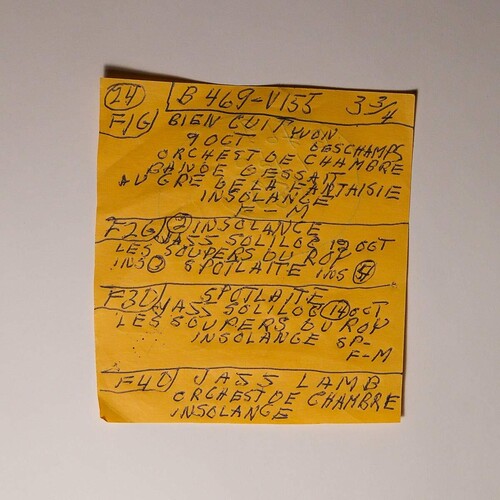 24 B 469-V155 3 3/4
F1G BIEN CUIT WON
9 OCT DESCHAMPS
ORCHEST DE CHAMBRE
BANDE DESSAIT
AU GRE DE LA FANTAISIE
INSOLANGE
F-M
F2G 2 INSOLANCE
JASS SOLILOC 19 OCT
LES SOUPERS DU ROY
INS SPOTLAITE INS
F3D SPOTLAITE
JASS SOLILOC 14 OCT
LES SOUPERS DU ROY
INSOLANGE SP-
F-M
F4D JASS LAMB
ORCHEST DE CHAMBRE
INSOLANGE